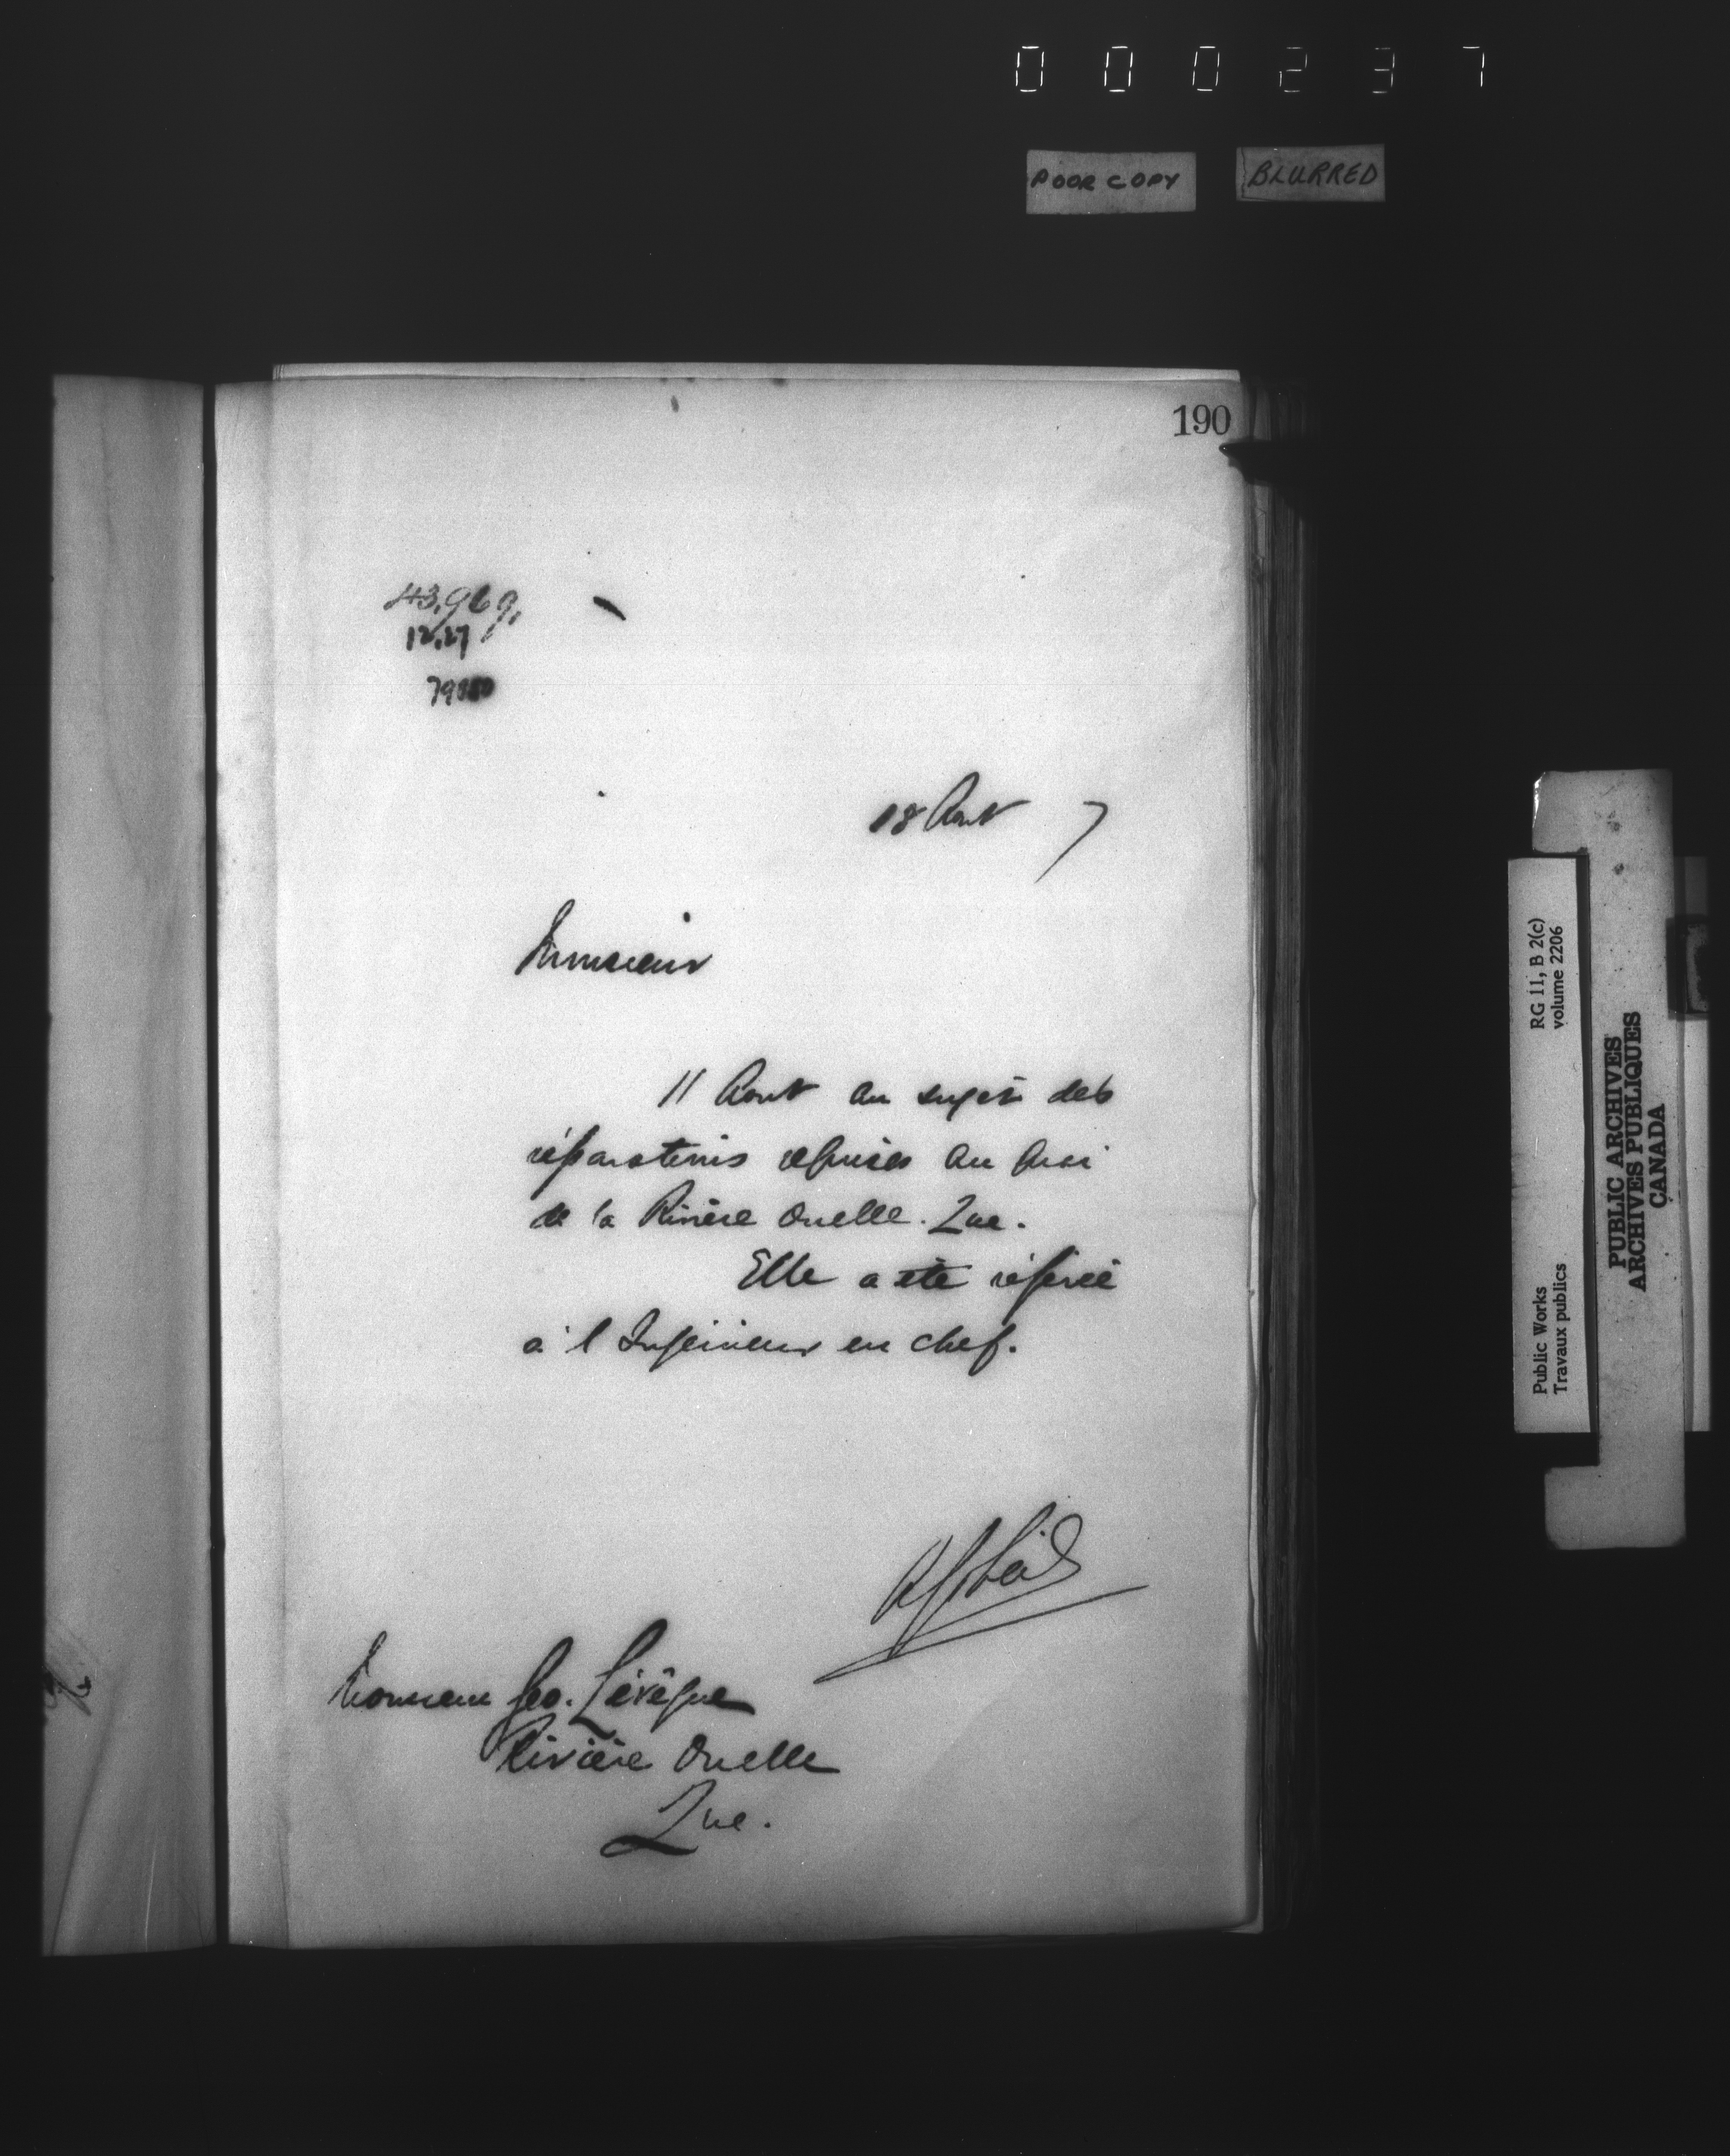 000237
POOR COPY BLURRED
190
43,969,
12.27
18 Aout 7
Monsieur
11 Aout au sujet des
réparations requises au Quai
de la Rivière Ouelle. Que.
Elle a été référée
à l Ingénieur en chef.
Monsieur Geo. Lévêque
Rivière Ouelle
Que.
Public Works
Travaux publics
RG 11, B 2(c)
volume 2206
PUBLIC ARCHIVES
ARCHIVES PUBLIQUES
CANADA